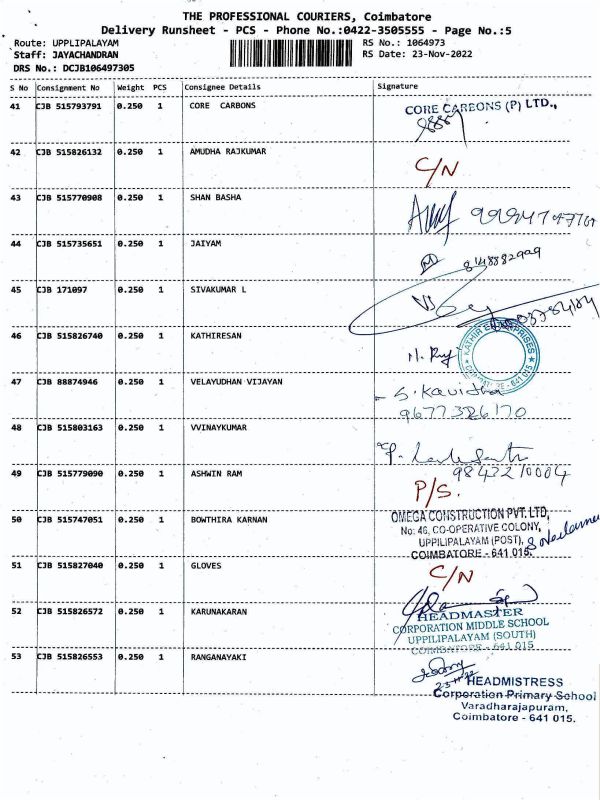 THE PROFESSIONAL COURIERS, Coimbatore
Delivery Runsheet - PCS - Phone No.:0422-3505555 - Page No.:5
Route: UPPLIPALAYAM
RS No.: 1064973
Staff: JAYACHANDRAN
RS Date: 23-Nov-2022
DRS No.: DCJB106497305
S No Consignment No Weight PCS Consignee Details Signature
41 CJB 515793791 0.250 1 CORE CARBONS
CORE CARBONS (P) LTD.,
42 CJB 515826132 0.250 1 AMUDHA RAJKUMAR
C/N
43 CJB 515770908 0.250 1 SHAN BASHA
44 CJB 515735651 0.250 1 JAIYAM
8148882909
45 CJB 171097 0.250 1 SIVAKUMAR L
46 CJB 515826740 0.250 1 KATHIRESAN
KATHIR ENTERPRISES
COIMBATORE - 641 015
47 CJB 88874946 0.250 1 VELAYUDHAN VIJAYAN
S. Kavidha
9677326170
48 CJB 515803163 0.250 1 VVINAYKUMAR
9843210004
49 CJB 515779090 0.250 1 ASHWIN RAM
P/S.
50 CJB 515747051 0.250 1 BOWTHIRA KARNAN
OMEGA CONSTRUCTION PVT. LTD,
No: 46, CO-OPERATIVE COLONY,
UPPILIPALAYAM (POST),
COIMBATORE - 641 015.
51 CJB 515827040 0.250 1 GLOVES
C/N
52 CJB 515826572 0.250 1 KARUNAKARAN
HEADMASTER
CORPORATION MIDDLE SCHOOL
UPPILIPALAYAM (SOUTH)
COIMBATORE - 641 015
53 CJB 515826553 0.250 1 RANGANAYAKI
HEADMISTRESS
Corporation Primary School
Varadharajapuram,
Coimbatore - 641 015.